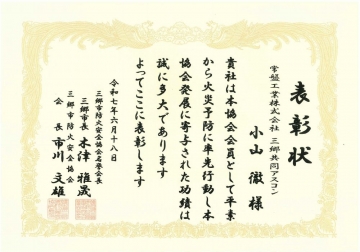 表彰状
常盤工業株式会社 三郷共同アスコン
小山 徹 様
貴社は本協会会員として平素
から火災予防に率先行動し本
協会発展に寄与された功績は
誠に多大であります
よってここに表彰します
令和七年六月十八日
三郷市防火安全協会名誉会長
三郷市長 木津雅晟
三郷市防火安全協会
会長 市川文雄